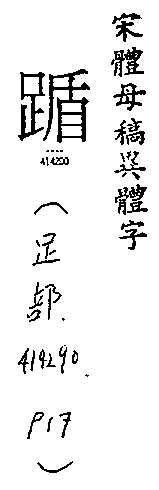 宋體母稿異體字
踲
414290
（足部.
414290.
P17）